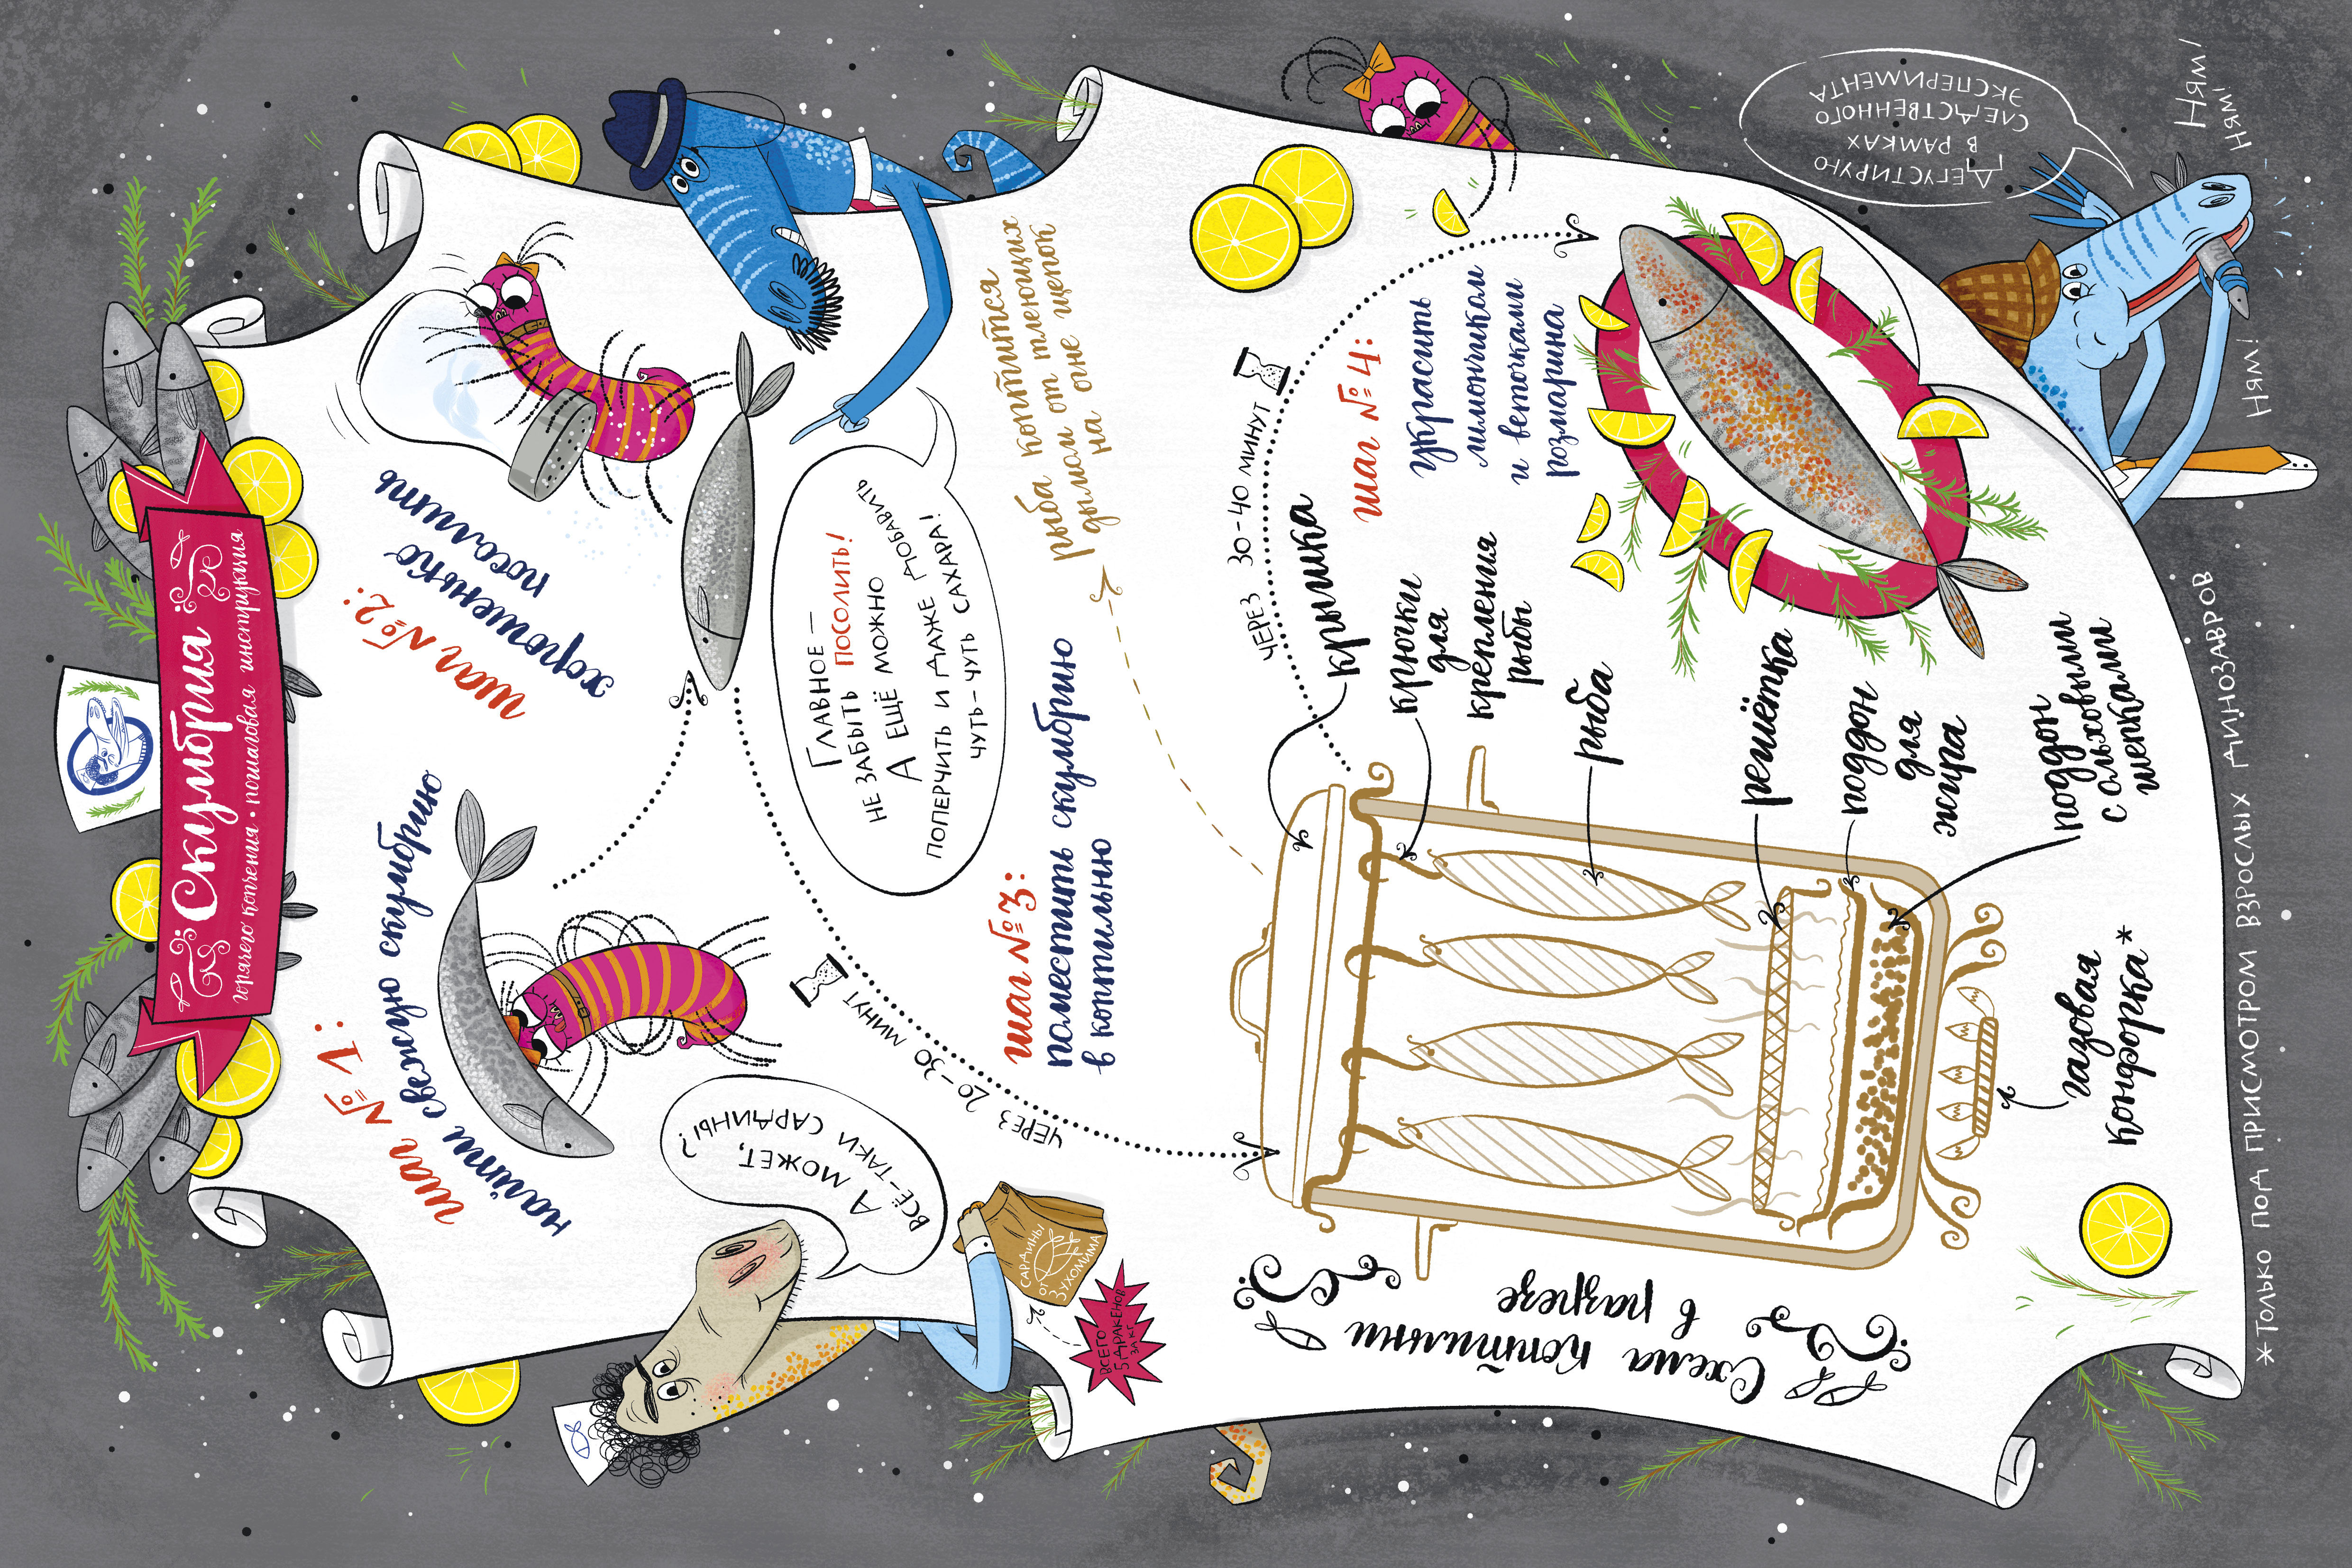 Скумбрия
горячего копчения • пошаговая инструкция
шаг № 1:
найти свежую скумбрию
шаг № 2:
хорошенько
посолить
А может,
всё-таки сардины?
Сардины
от
Зухомима
Всего
5 дракенов
за кг
Главное –
не забыть посолить!
А ещё можно
поперчить и даже добавить
чуть-чуть сахара!
через 20–30 минут
шаг № 3:
поместить скумбрию
в коптильню
рыба коптится
дымом от тлеющих
на огне щепок
Схема коптильни
в разрезе
крышка
крючки
для
крепления
рыбы
рыба
решётка
поддон
для
жира
поддон
с ольховыми
щепками
газовая
конфорка*
через 30–40 минут
шаг № 4:
украсить
лимончиком
и веточками
розмарина
Дегустирую
в рамках
следственного
эксперимента
Ням!
Ням!
Ням!
*Только под присмотром взрослых динозавров